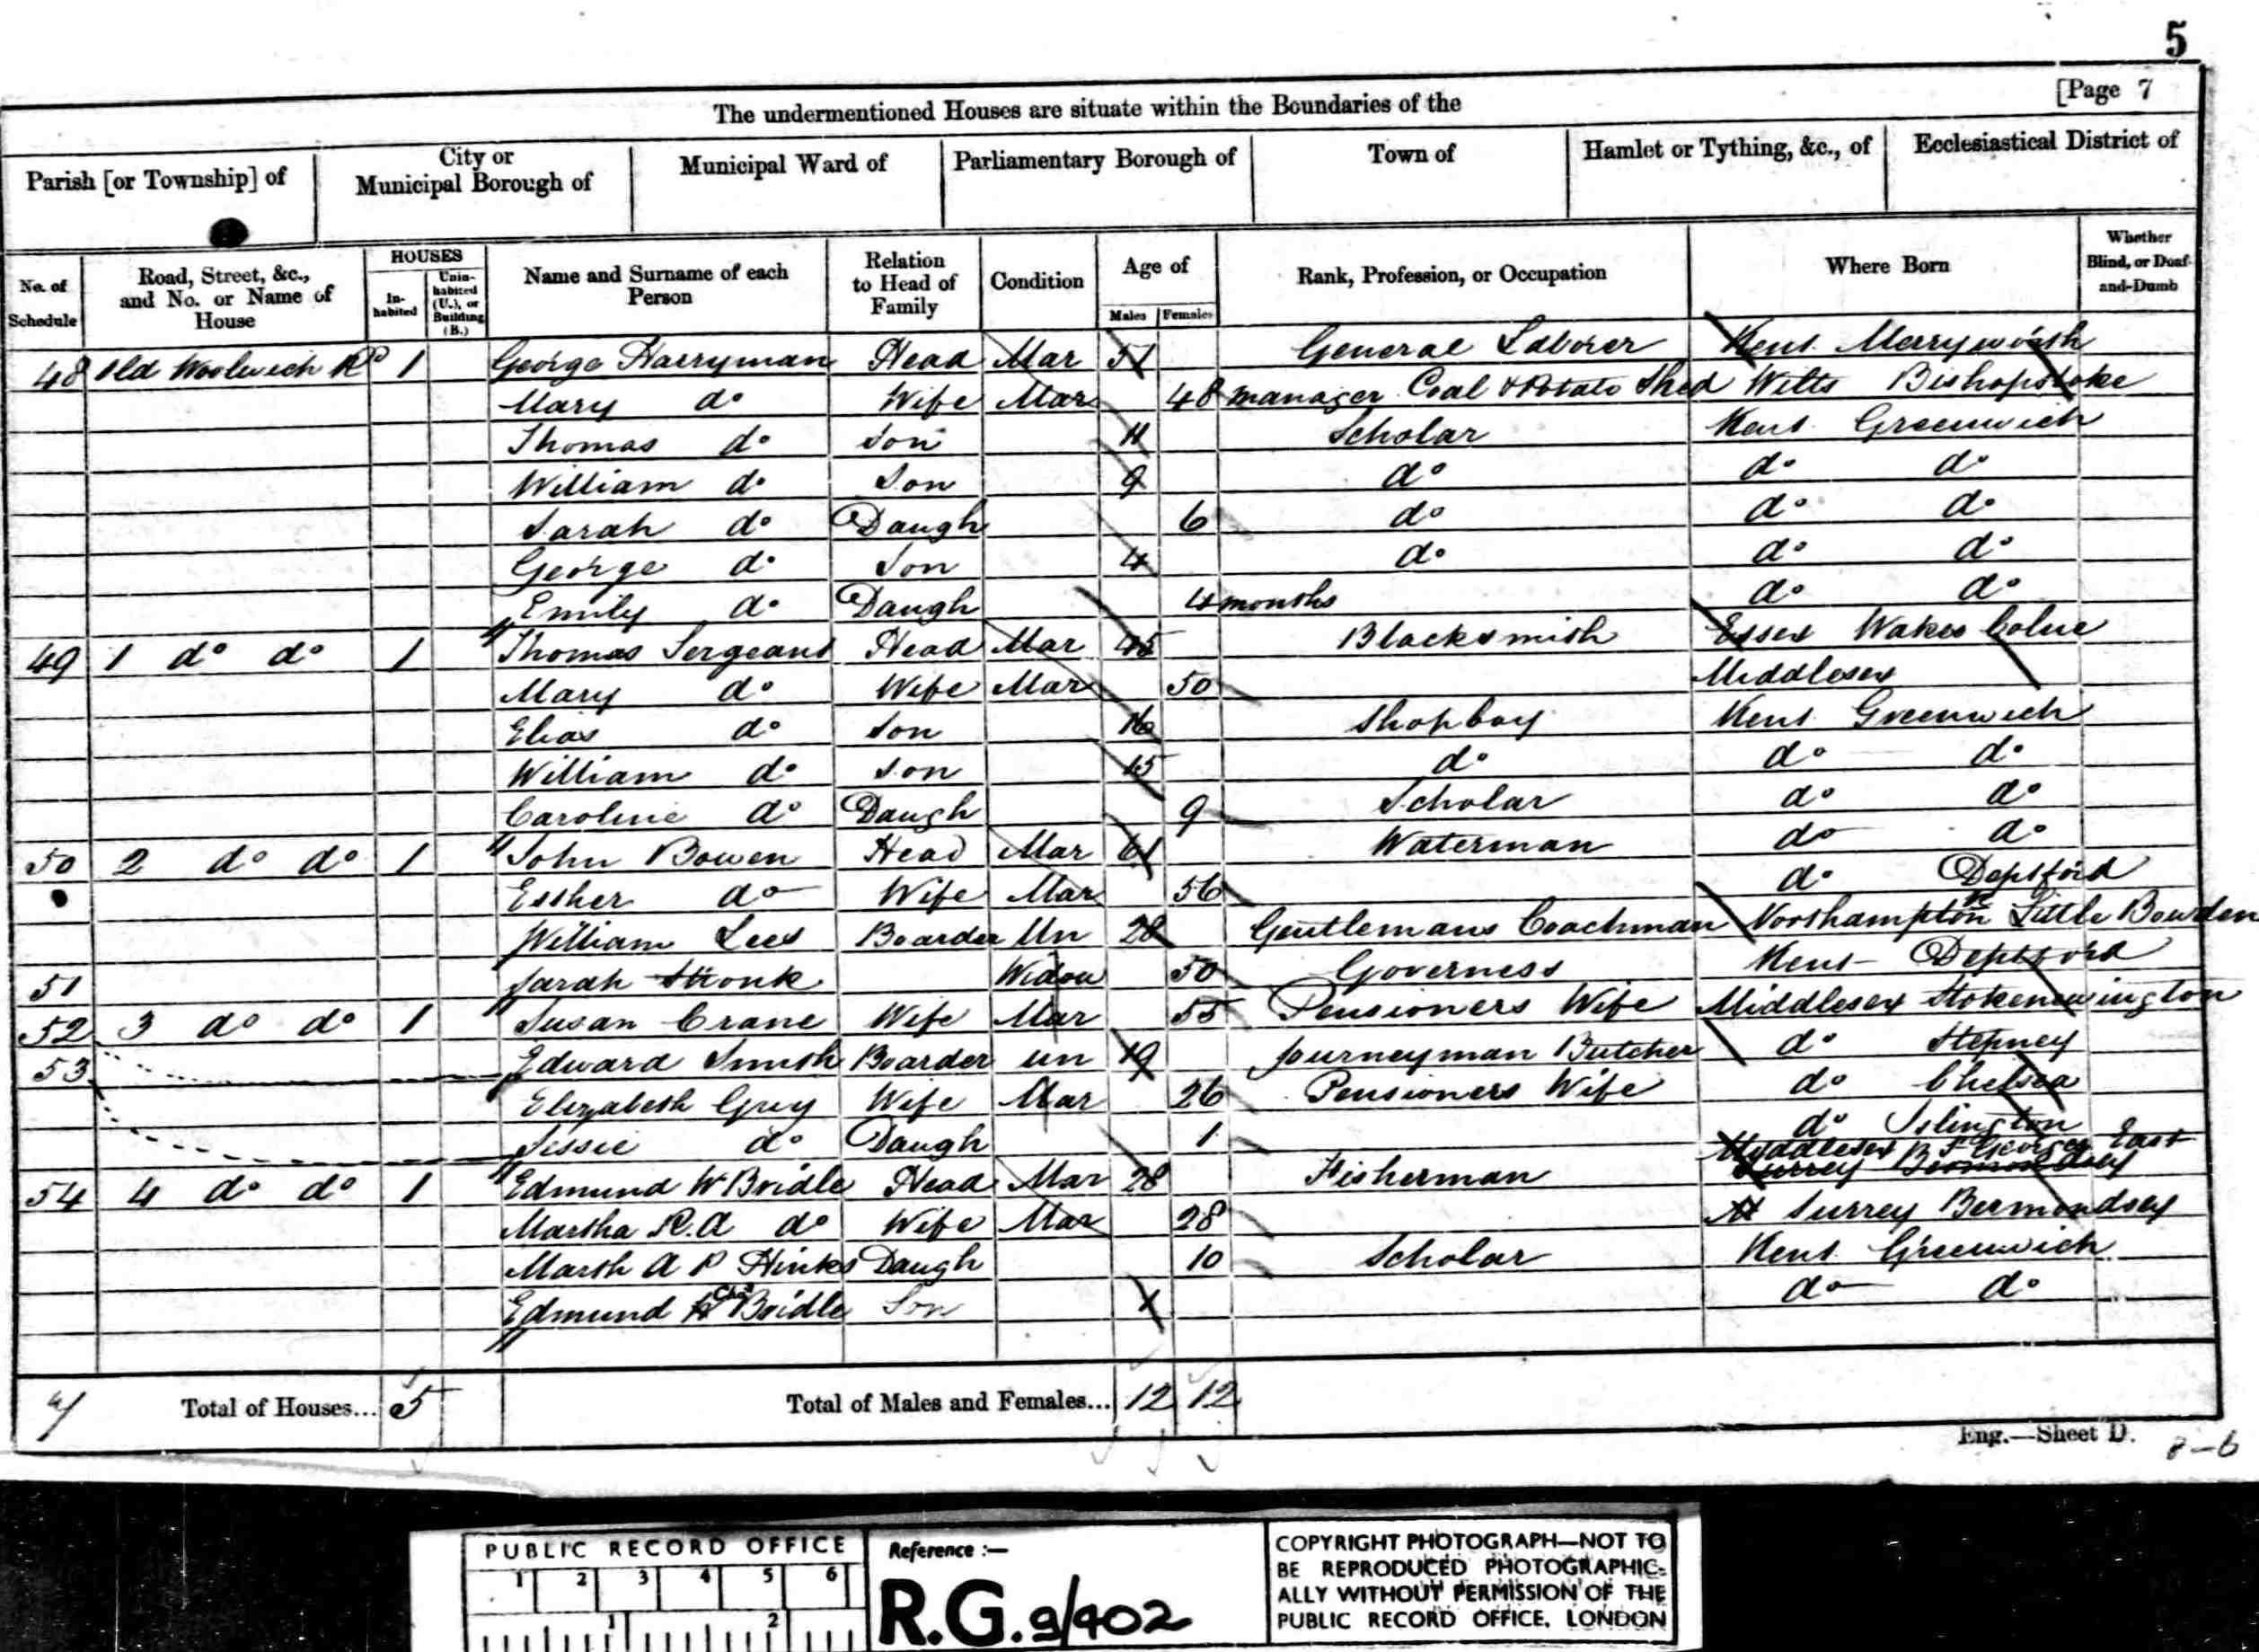 5
[Page 7
The undermentioned Houses are situate within the Boundaries of the
Parish [or Township] of | City or Municipal Borough of | Municipal Ward of | Parliamentary Borough of | Town of | Hamlet or Tything, &c., of | Ecclesiastical District of
No. of Schedule | Road, Street, &c., and No. or Name of House | HOUSES In-habited | Unin-habited (U.), or Building (B.) | Name and Surname of each Person | Relation to Head of Family | Condition | Age of Males | Females | Rank, Profession, or Occupation | Where Born | Whether Blind, or Deaf-and-Dumb
48 Old Woolwich Rd 1 George Harryman Head Mar 51 General Laborer Kent Merryworth
Mary do Wife Mar 48 manager Coal & Potato Shed Wilts Bishopstoke
Thomas do Son 11 Scholar Kent Greenwich
William do Son 9 do do do
Sarah do Daugh 6 do do do
George do Son 4 do do do
Emily do Daugh 4 months do do
49 1 do do 1 Thomas Sergeant Head Mar 45 Blacksmith Essex Wakes Colne
Mary do Wife Mar 50 Middlesex
Elias do Son 16 Shopboy Kent Greenwich
William do Son 15 do do do
Caroline do Daugh 9 Scholar do do
50 2 do do 1 John Bowen Head Mar 61 Waterman do do
Esther do Wife Mar 56 do Deptford
William Lees Boarder Un 28 Gentlemans Coachman Northampton Little Bowden
51 Sarah Stronk Widow 50 Governess Kent Deptford
52 3 do do 1 Susan Crane Wife Mar 55 Pensioners Wife Middlesex Stokenewington
53 Edward Smith Boarder un 19 Journeyman Butcher do Stepney
Elizabeth Guy Wife Mar 26 Pensioners Wife do Chelsea
Jessie do Daugh 1 do Islington
Middlesex St Georges East
54 4 do do 1 Edmund W Bridle Head Mar 28 Fisherman Surrey Bermondsey
Martha R. A do Wife Mar 28 Surrey Bermondsey
Marth A P Hinks Daugh 10 Scholar Kent Greenwich
Edmund Chas Bridle Son 1 do do
Total of Houses... 5 Total of Males and Females... 12 12
Eng.—Sheet D.
PUBLIC RECORD OFFICE
1 2 3 4 5 6
1 2
Reference :—
R.G. 9/402
COPYRIGHT PHOTOGRAPH—NOT TO
BE REPRODUCED PHOTOGRAPHIC-
ALLY WITHOUT PERMISSION OF THE
PUBLIC RECORD OFFICE, LONDON